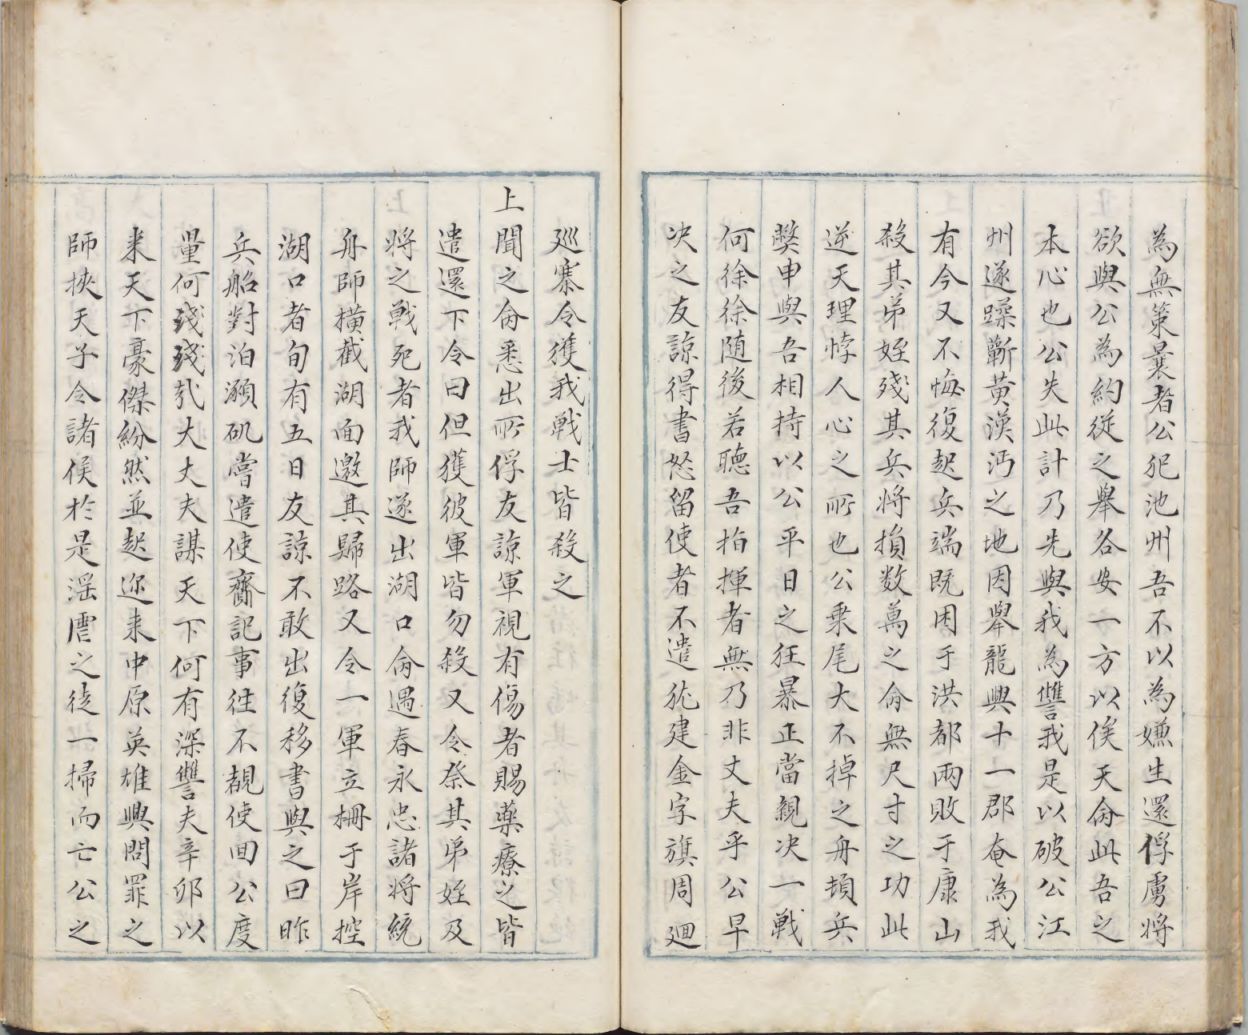 為無策曩者公犯池州吾不以為嫌生還俘虜將
欲與公為約従之舉各安一方以俟天命此吾之
本心也公失此計乃先與我為讐我是以破公江
州遂蹂蘄黃漢沔之地因舉龍興十一郡奄為我
有今又不悔復起兵端既困于洪都兩敗于康山
殺其弟姪殘其兵将損数萬之命無尺寸之功此
逆天理悖人心之所也公乗尾大不掉之舟頓兵
獘申與吾相持以公平日之狂暴正當親决一戰
何徐徐随後若聴吾指揮者無乃非丈夫乎公早
决之友諒得書怒留使者不遣猶建金字旗周廻
廵寨令獲我戰士皆殺之
上聞之命悉出所俘友諒軍視有傷者賜藥療之皆
遣還下令曰但獲彼軍皆勿殺又令祭其弟姪及
將之戰死者我師遂出湖口命遇春永忠諸將統
舟師横截湖面邀其歸路又令一軍立柵于岸控
湖口者旬有五日友諒不敢出復移書與之曰昨
兵船對泊瀕矶嘗遣使齎記事徃不覩使回公度
量何淺淺㦲大丈夫謀天下何有深讐夫辛卯以
来天下豪傑紛然並起迩来中原英雄興問罪之
師挾天子令諸侯於是淫虐之徒一掃而亡公之